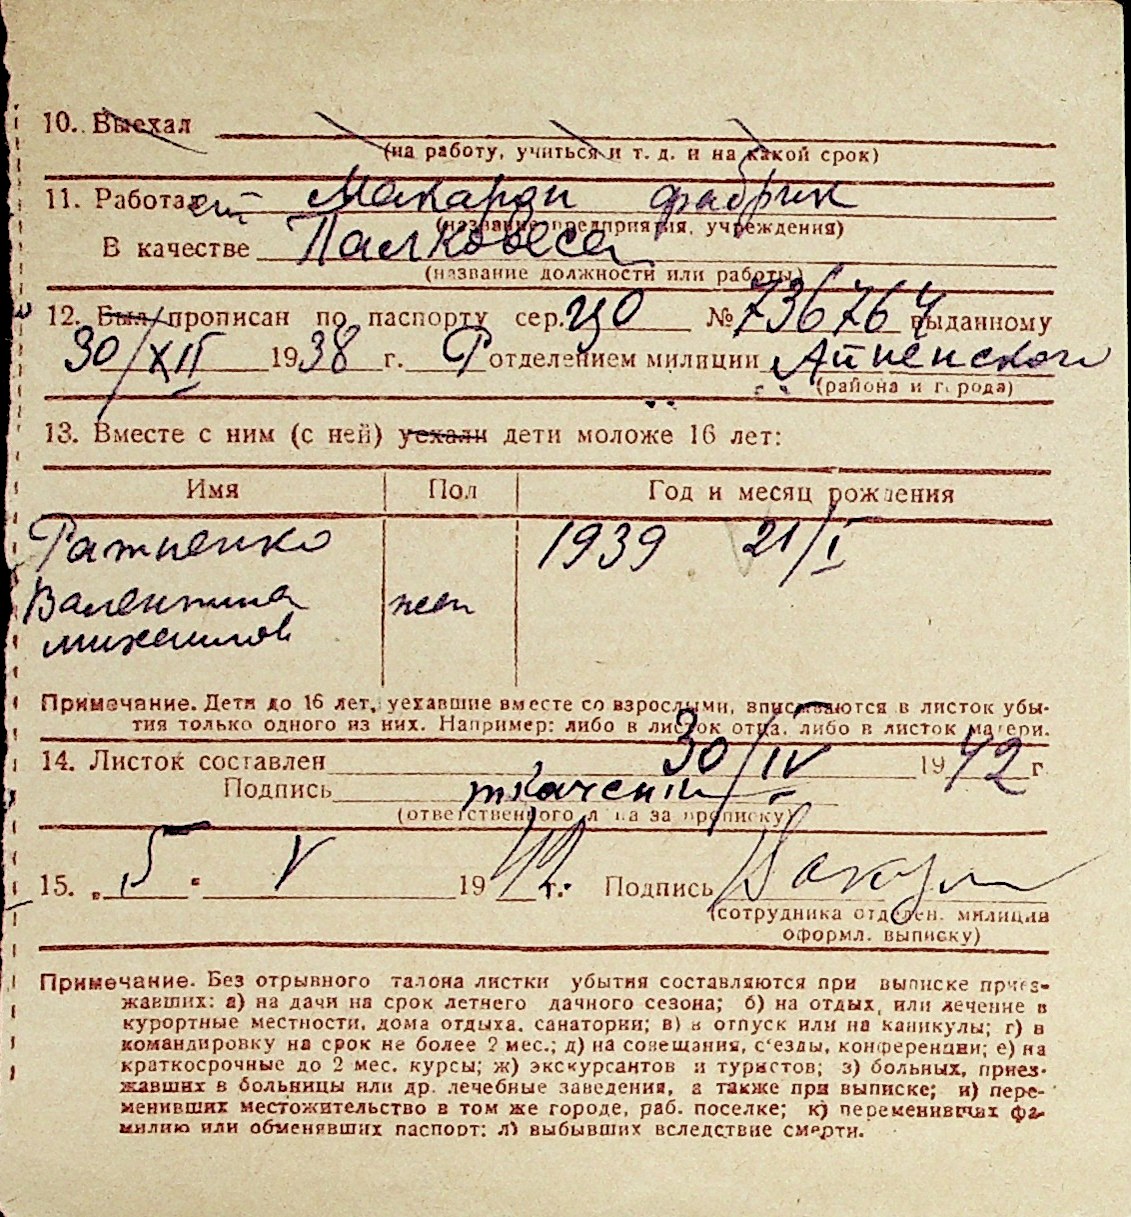 10. Выехал
(на работу, учиться и т. д. и на какой срок)
11. Работает Макарон фабрик
(название предприятия, учреждения)
В качестве
(название должности или работы)
12. Был прописан по паспорту сер. ЦО № 736764 выданному
30/XII 1938 г. Р отделением милиции
(района и города)
13. Вместе с ним (с ней) уехали дети моложе 16 лет:
Имя Пол Год и месяц рождения
1939 21/I
Валентина жен
михайлов
Примечание. Дети до 16 лет, уехавшие вместе со взрослыми, вписываются в листок убы-
тия только одного из них. Например: либо в листок отца, либо в листок матери.
14. Листок составлен 30/IV 1942 г
Подпись
(ответственного лица за прописку)
15. „5" V 1942 г. Подпись
(сотрудника отделен. милиции
оформл. выписку)
Примечание. Без отрывного талона листки убытия составляются при выписке приез-
жавших: а) на дачи на срок летнего дачного сезона; б) на отдых, или лечение в
курортные местности, дома отдыха, санатории; в) в отпуск или на каникулы; г) в
командировку на срок не более 2 мес.; д) на совещания, с'езды, конференции; е) на
краткосрочные до 2 мес. курсы; ж) экскурсантов и туристов; з) больных, приез-
жавших в больницы или др. лечебные заведения, а также при выписке; и) пере-
менивших местожительство в том же городе, раб. поселке; к) переменивших фа-
милию или обменявших паспорт; л) выбывших вследствие смерти.